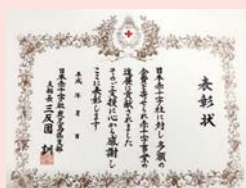 表彰状
日本赤十字社に対し多額の
金費を寄せられ赤十字事業の
進展に貢献されました
そのご支援に心から感謝し
ここに表彰します
平成 年 月 日
日本赤十字社鹿児島県支部
支部長 三反園 訓